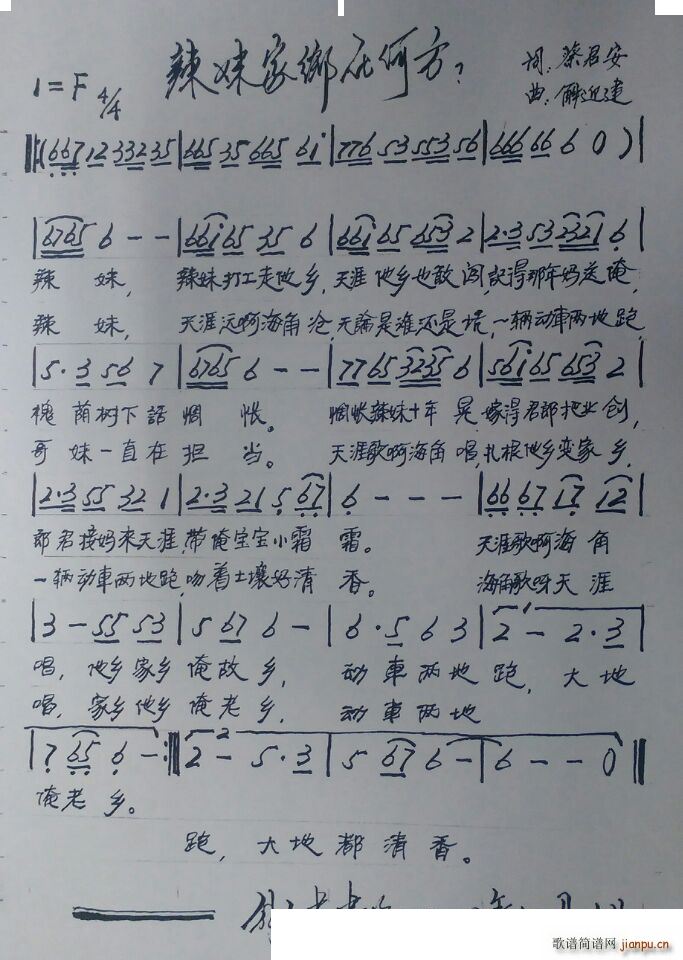 辣妹家鄉在何方?
1=F 4/4
词:蔡君安
曲:解近建
‖:(667 12 332 35|665 35 665 61|776 53 553 56|666 66 6 0)|
|6765 6 - -|661 65 35 6|661 65 653 2|2·3 53 2321 6|
辣 妹, 辣妹打工走他乡,天涯他乡也敢闯,記得那年妈送俺,
辣 妹, 天涯远啊海角沧,无論是难还是,一辆动車两地跑,
|5·3 56 7|6765 6 - -|77 65 3235 6|561 65 653 2|
槐荫树下話惆怅。 惆怅辣妹十年晃,嫁得君郎把业创,
哥妹一直在担当。 天涯歌啊海角唱,扎根他乡变家乡,
|2·3 55 32 1|2·3 21 5 67|6 - - -|66 67 17 12|
郎君接妈来天涯,带俺宝宝小霜霜。 天涯歌啊海角
一辆动車两地跑,吻着土壤好清香。 海角歌呀天涯
|3 - 55 53|5 67 6 -|6·5 6 3|2 - 2·3|
唱,他乡家乡俺故乡, 动車两地跑,大地
唱,家乡他乡俺老乡, 动車两地
|7 65 6 -:‖2 - 5·3|5 67 6 -|6 - - 0‖
俺老乡。
跑,大地都清香。
歌谱简谱网 jianpu.cn